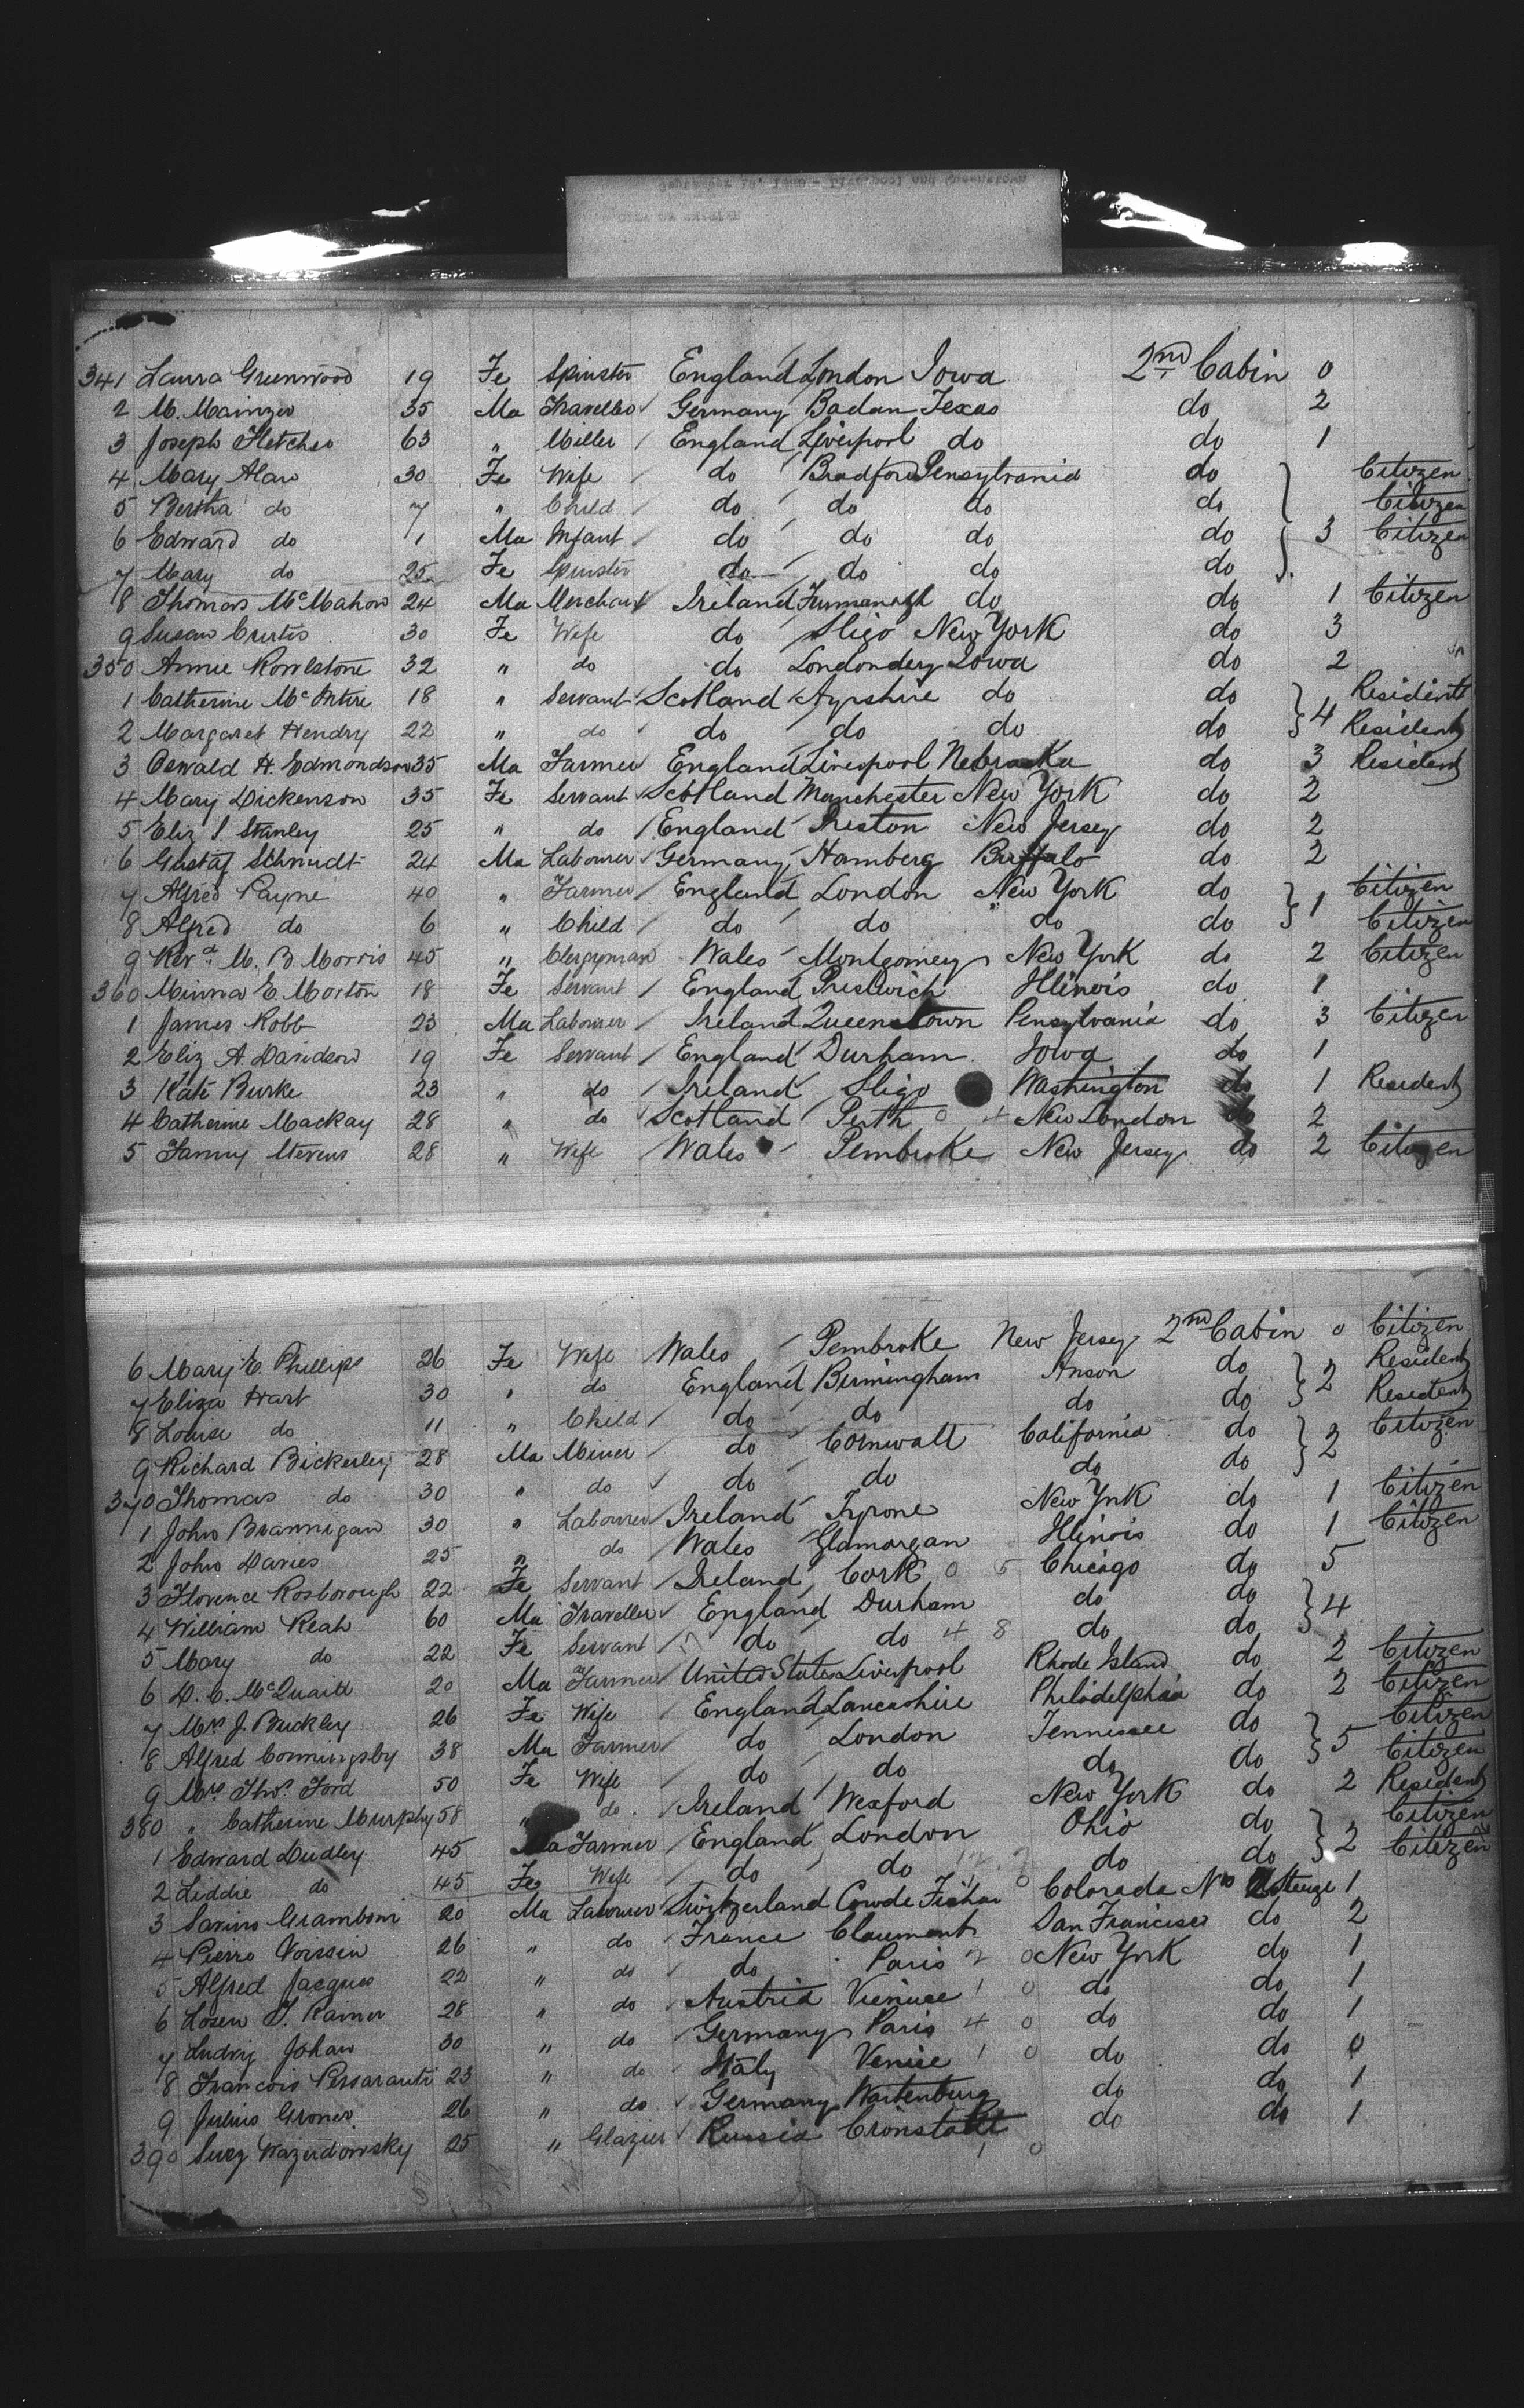 341 Laura Greenwood 19 Fe Spinster England London Iowa 2nd Cabin 0
2 M. Mainzer 35 Ma Traveller Germany Badan Texas do 2
3 Joseph Fletcher 63 " Miller England Liverpool do do 1
4 Mary Alan 30 Fe Wife do Bradford Pensylvania do Citizen
5 Bertha do 7 " Child do do do do Citizen
6 Edward do 1 Ma Infant do do do do 3 Citizen
7 Mary do 25 Fe Spinster do do do do
8 Thomas McMahon 24 Ma Merchant Ireland Furmanagh do do 1 Citizen
9 Susan Curtis 30 Fe Wife do Sligo New York do 3
350 Annie Rowlstone 32 " do do Londondery Iowa do 2
1 Catherine McIntire 18 " Servant Scotland Ayrshire do do 4 Resident
2 Margaret Hendry 22 " do do do do do Resident
3 Oswald H. Edmondson 35 Ma Farmer England Liverpool Nebraska do 3 Resident
4 Mary Dickenson 35 Fe Servant Scotland Manchester New York do 2
5 Eliz S. Stanley 25 " do England Preston New Jersey do 2
6 Gustaf Schmidt 24 Ma Labourer Germany Hamberg Buffalo do 2
7 Alfred Payne 40 " Farmer England London New York do 1 Citizen
8 Alfred do 6 " Child do do do do Citizen
9 Revd M. B. Morris 45 " Clergyman Wales Montgomery New York do 2 Citizen
360 Minna E. Morton 18 Fe Servant England Prestwich Illinois do 1
1 James Robb 23 Ma Labourer Ireland Queenstown Pensylvania do 3 Citizen
2 Eliz A Davidson 19 Fe Servant England Durham Iowa do 1
3 Kate Burke 23 " do Ireland Sligo Washington do 1 Resident
4 Catherine Mackay 28 " do Scotland Perth 0 4 New London do 2
5 Fanny Stevens 28 " Wife Wales Pembroke New Jersey do 2 Citizen
6 Mary E. Phillips 26 Fe Wife Wales Pembroke New Jersey 2nd Cabin 0 Citizen
7 Eliza Hart 30 " do England Birmingham Anson do 2 Resident
8 Louise do 11 " Child do do do do Resident
9 Richard Bickerley 28 Ma Miner do Cornwall California do 2 Citizen
370 Thomas do 30 " do do do do do
1 John Brannigan 30 " Labourer Ireland Tyrone New York do 1 Citizen
2 John Davies 25 " do Wales Glamorgan Illinois do 1 Citizen
3 Florence Rosborough 22 Fe Servant Ireland Cork 0 5 Chicago do 5
4 William Reah 60 Ma Traveller England Durham do do 4
5 Mary do 22 Fe Servant do do 4 8 do do
6 D. C. McQuaid 20 Ma Farmer United States Liverpool Rhode Island do 2 Citizen
7 Mrs J. Buckley 26 Fe Wife England Lancashire Philadelphia do 2 Citizen
8 Alfred Conningsby 38 Ma Farmer do London Tennessee do 5 Citizen
9 Mrs Thos Ford 50 Fe Wife do do do do Citizen
380 " Catherine Murphy 58 " do Ireland Wexford New York do 2 Resident
1 Edward Dudley 45 Ma Farmer England London Ohio do 2 Citizen
2 Liddie do 45 Fe Wife do do do do Citizen
3 Savino Gramboni 20 Ma Labourer Switzerland Colorado Steerage 1
4 Pierro Voissin 26 " do France Claumont San Francisco do 2
5 Alfred Jacques 22 " do do Paris 2 0 New York do 1
6 Losen J. Ramer 28 " do Austria 1 0 do do 1
7 Ludvig Johan 30 " do Germany Paris 4 0 do do 1
8 Francois 23 " do Italy Venise 1 0 do do 0
9 Julius Groner 26 " do Germany Wartenburg do do 1
390 Wazerdowsky 25 " Glazier Russia Cronstadt 1 0 do do 1